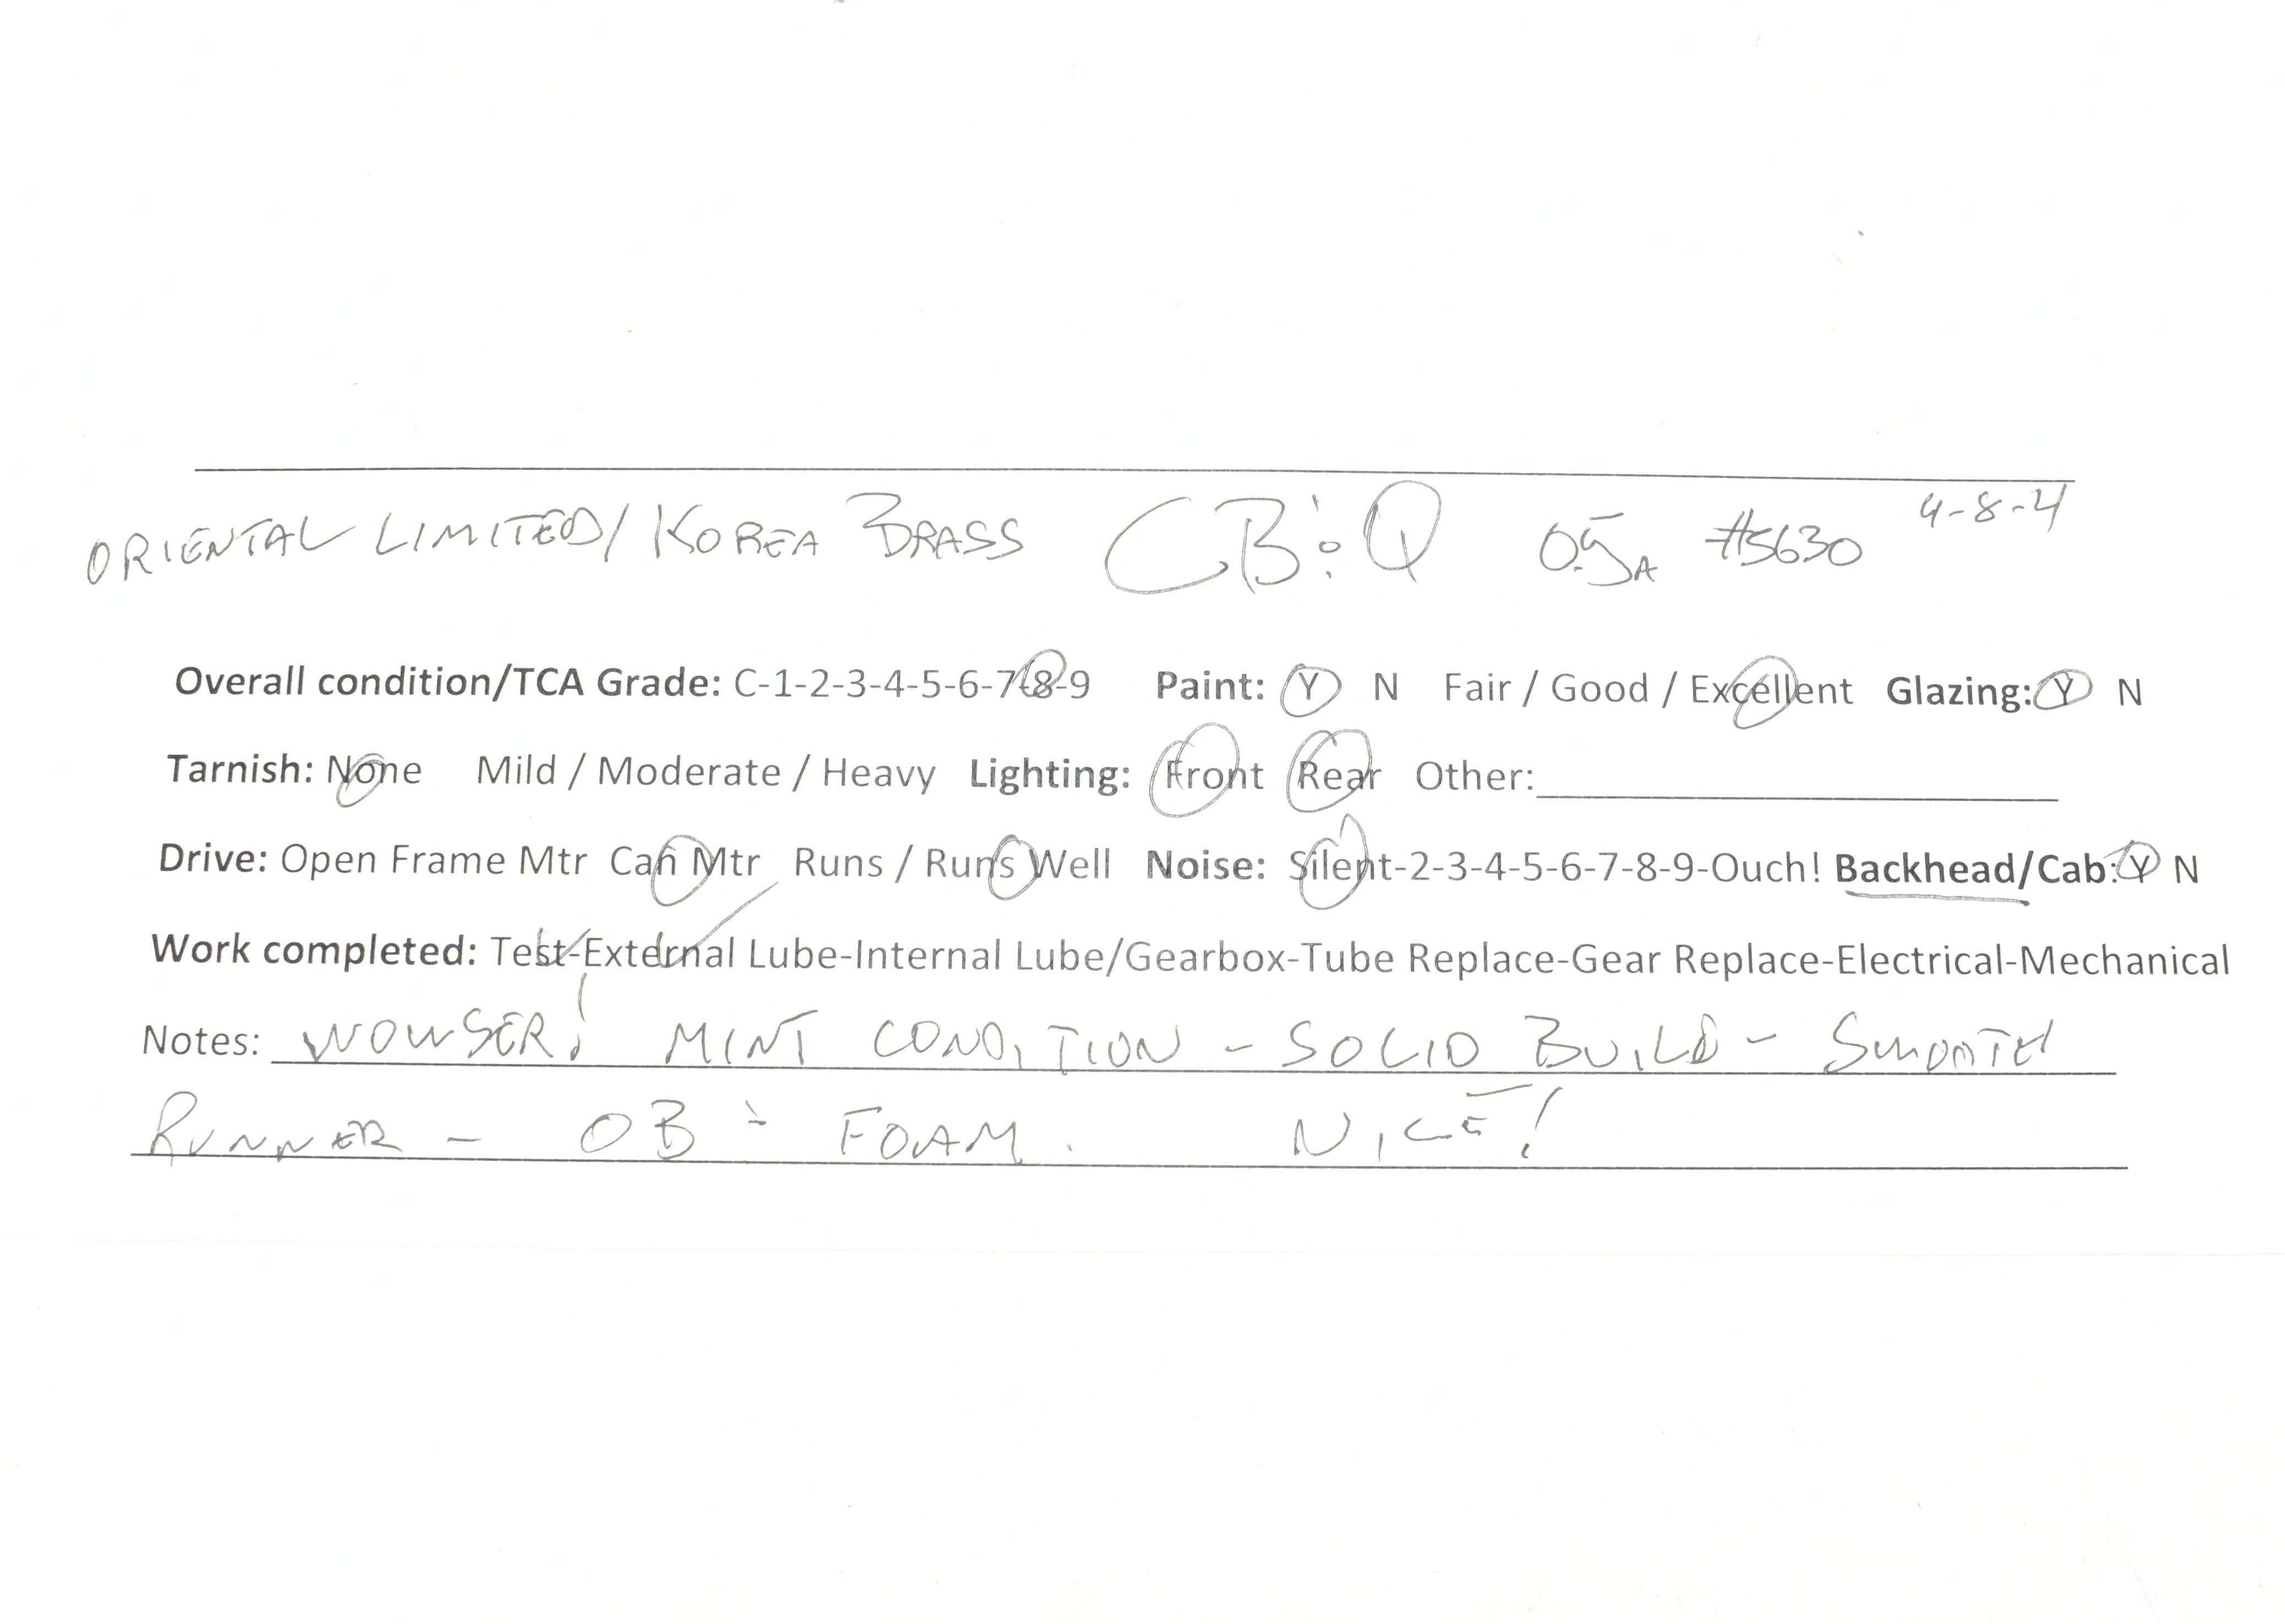 ORIENTAL LIMITED/KOREA BRASS CB&Q O5A #5630 4-8-4
Overall condition/TCA Grade: C-1-2-3-4-5-6-7-8-9 Paint: Y N Fair / Good / Excellent Glazing: Y N
Tarnish: None Mild / Moderate / Heavy Lighting: Front Rear Other:
Drive: Open Frame Mtr Can Mtr Runs / Runs Well Noise: Silent-2-3-4-5-6-7-8-9-Ouch! Backhead/Cab: Y N
Work completed: Test-External Lube-Internal Lube/Gearbox-Tube Replace-Gear Replace-Electrical-Mechanical
Notes: WOWSER! MINT CONDITION - SOLID BUILD - SMOOTH
RUNNER - OB & FOAM. NICE!